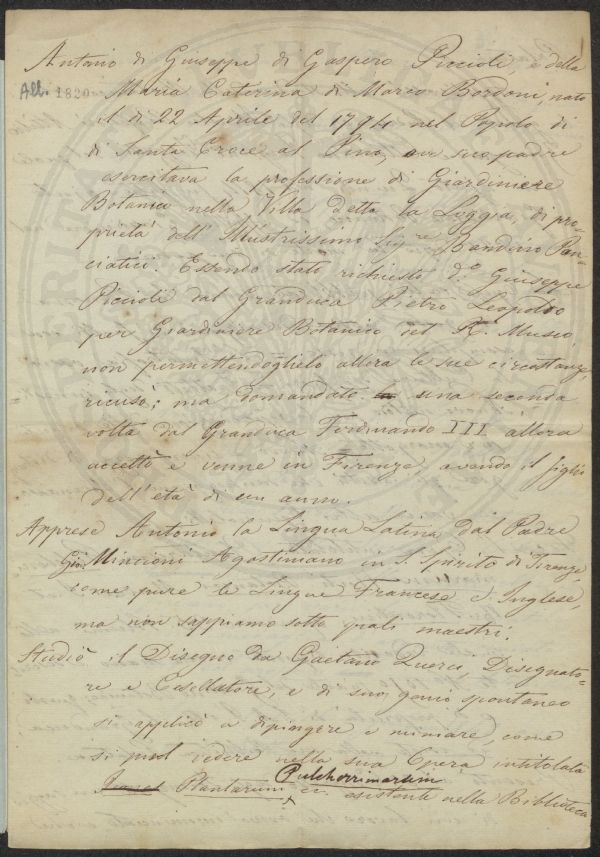 Antonio di Giuseppe di Gaspero Piccioli, e della
All. 1820
Maria Caterina di Marco Bordoni, nato
il di 22 Aprile del 1794 nel Popolo di
di Santa Croce al Pino, ove suo padre
esercitava la professione di Giardiniere
Botanico nella Villa detta la Loggia, di pro-
prietà dell' Illustrissimo Sigre Bandino Pan-
ciatici. Essendo stato richiesto do Giuseppe
Piccioli dal Granduca Pietro Leopoldo
per Giardiniere Botanico del R. Museo
non permettendoglielo allora le sue circostanze,
ricusò; ma domandato una seconda
volta dal Granduca Ferdinando III allora
accettò e venne in Firenze, avendo il figlio
dell' età di un anno.
Apprese Antonio la Lingua Latina dal Padre
Gio. Mincioni Agostiniano in S. Spirito di Firenze,
come pure le Lingue Francese e Inglese,
ma non sappiamo sotto quali maestri.
Studiò il Disegno da Gaetano Querci, Disegnato-
re e Cesellatore, e di suo genio spontaneo
si applicò a dipingere e miniare come
si può vedere nella sua Opera intitolata
Pulcherrimarum
Plantarum ec. esistente nella Biblioteca